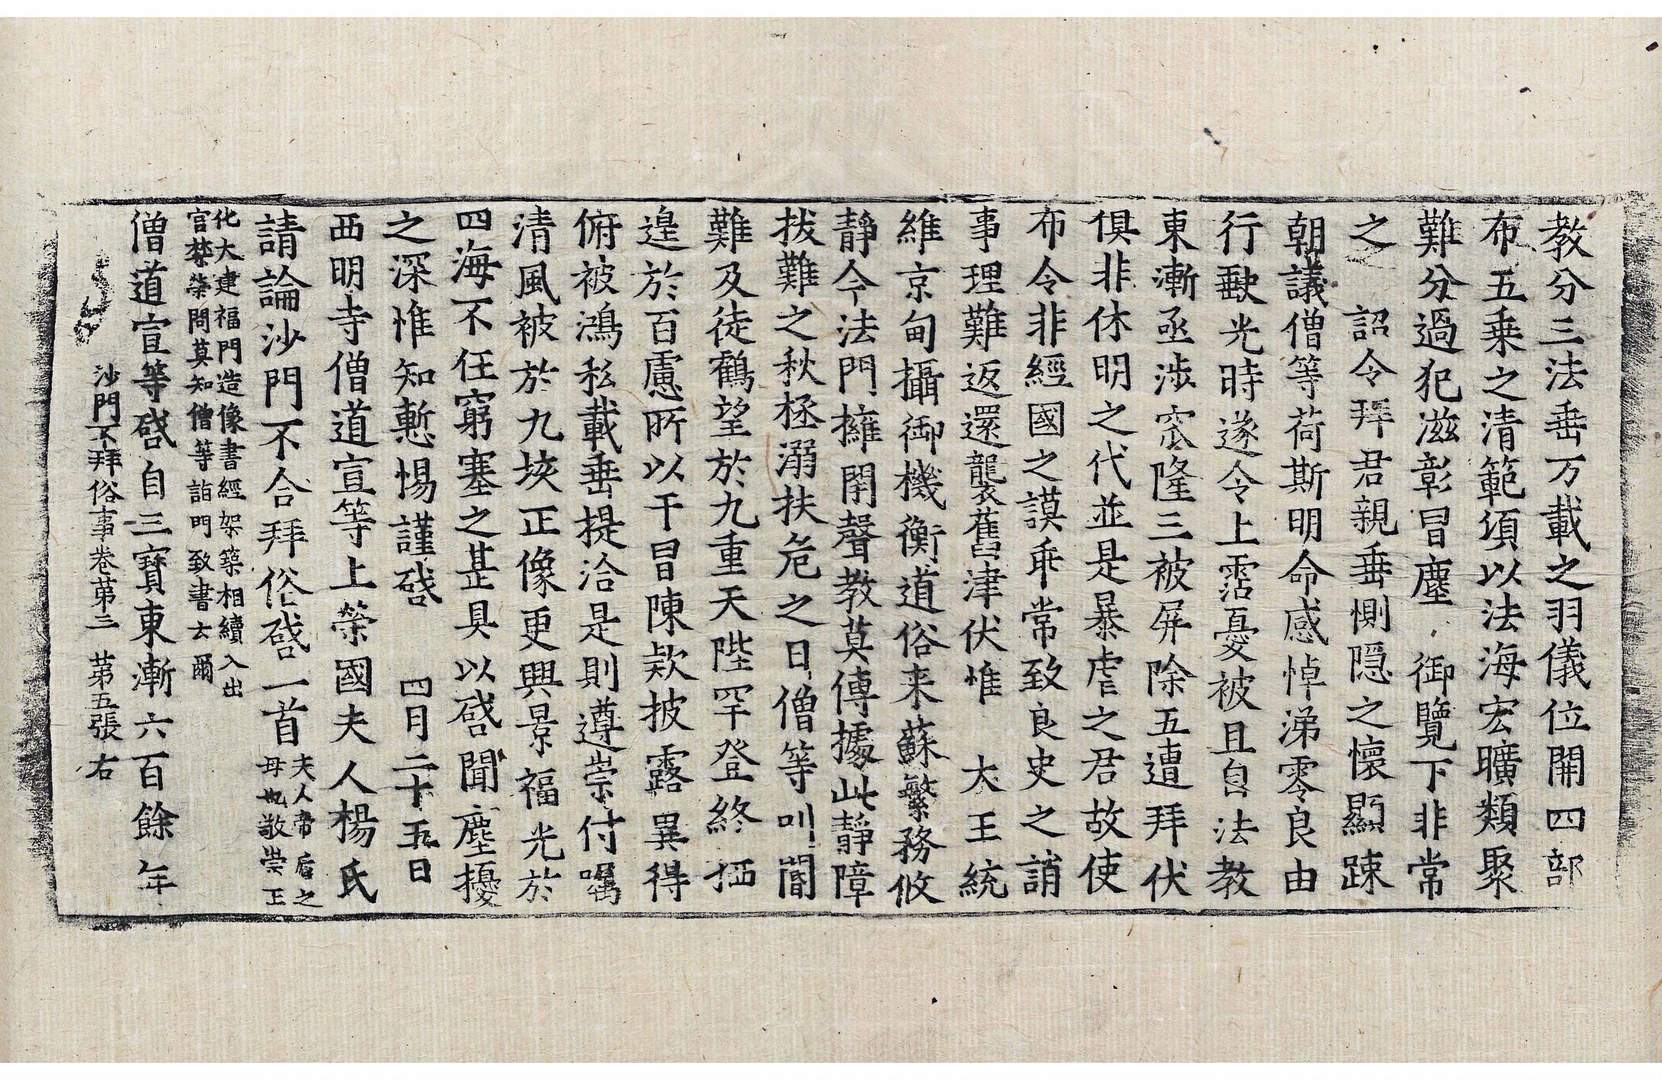 教分三法垂万載之羽儀位開四部
布五乗之清範須以法海宏曠類聚
難分過犯滋彰冒塵 御覽下非常
之 詔令拜君親垂惻隱之懷顯踈
朝議僧等荷斯明命感悼涕零良由
行缺光時遂令上霑憂被且自法教
東漸亟涉窊隆三被屏除五遭拜伏
俱非休明之代並是暴虐之君故使
布令非經國之謨乖常致良史之誚
事理難返還襲舊津伏惟 大王統
維京甸攝御機衡道俗来蘇繁務攸
靜今法門擁閇聲教莫傳據此靜障
拔難之秋拯溺扶危之日僧等叫閽
難及徒鶴望於九重天陛罕登終栖
遑於百慮所以干冒陳欵披露異得
俯被鴻私載垂提洽是則遵崇付囑
清風被於九垓正像更興景福光於
四海不任窮塞之甚具以啓聞塵擾
之深惟知慙惕謹啓 四月二十五日
西明寺僧道宣等上榮國夫人楊氏
請論沙門不合拜俗啓一首 夫人帝后之
母也敬崇正
化大建福門造像書經架築相續入出
宫禁榮問莫知僧等詣門致書云爾
僧道宣等啓自三寳東漸六百餘年
沙門不拜俗事卷第三 第五張 右